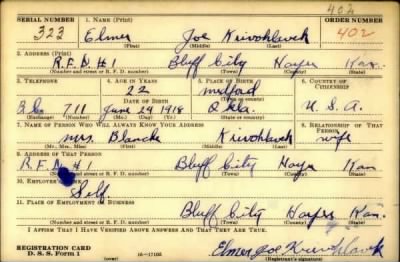 402
SERIAL NUMBER 1. NAME (Print) ORDER NUMBER
323 Elmer Joe Krivohlavek 402
(First) (Middle) (Last)
2. ADDRESS (Print)
R.F.D. #1 Bluff City Harper Kan.
(Number and street or R. F. D. number) (Town) (County) (State)
3. TELEPHONE 4. AGE IN YEARS 5. PLACE OF BIRTH 6. COUNTRY OF CITIZENSHIP
22 Medford
DATE OF BIRTH (Town or county)
711 June 29 1918 Okla. U.S.A.
(Exchange) (Number) (Mo.) (Day) (Yr.) (State or country)
7. NAME OF PERSON WHO WILL ALWAYS KNOW YOUR ADDRESS 8. RELATIONSHIP OF THAT PERSON
Mrs. Krivohlavek wife
(Mr., Mrs., Miss) (First) (Middle) (Last)
9. ADDRESS OF THAT PERSON
R.F.D. #1 Bluff City Harper Kan
(Number and street or R. F. D. number) (Town) (County) (State)
10. EMPLOYER'S NAME
Self
11. PLACE OF EMPLOYMENT OR BUSINESS
Bluff City Harper Kan.
(Number and street or R. F. D. number) (Town) (County) (State)
I AFFIRM THAT I HAVE VERIFIED ABOVE ANSWERS AND THAT THEY ARE TRUE.
REGISTRATION CARD
D. S. S. Form 1 16-17105 Elmer Joe Krivohlavek
(Registrant's signature)